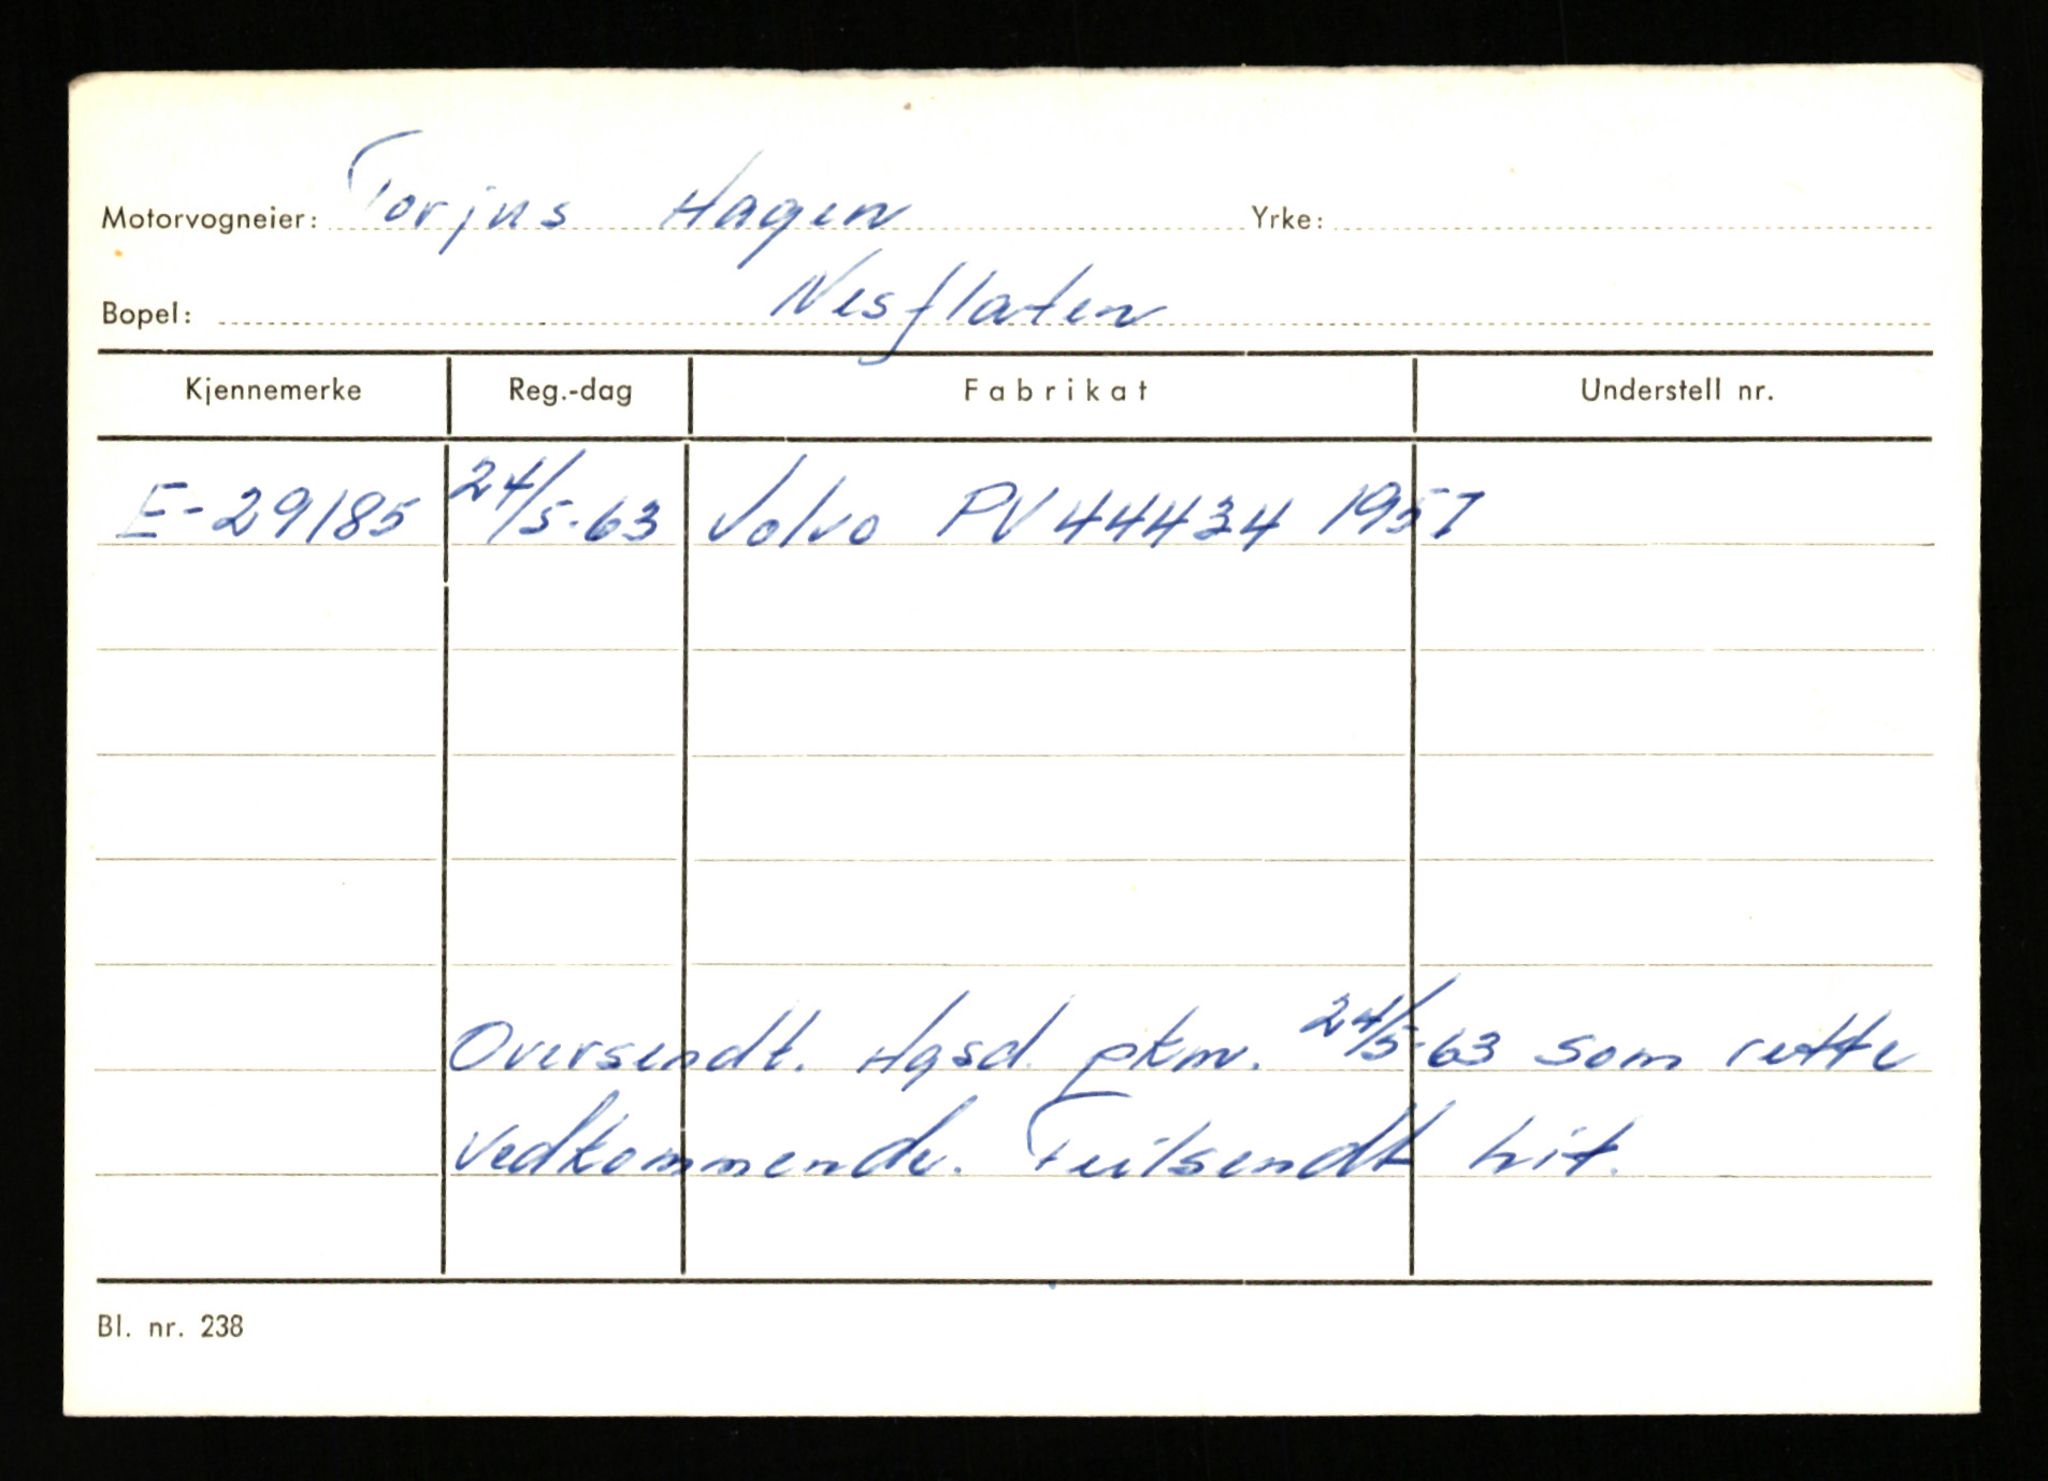 Motorvogneier: Torjus Hagen Yrke:
Bopel: Nesflaten
Kjennemerke Reg.-dag Fabrikat Understell nr.
E-29185 24/5-63 Volvo PV 44434 1957
Oversendt. Hgsd. pkm. 24/5-63 som rette
vedkommende. Feilsendt hit.
Bl. nr. 238